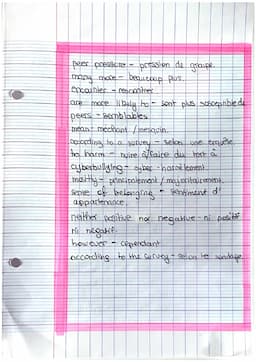 peer pressure - pression du groupe.
many more - beaucoup plus.
encounter - rencontrer
are more likely to - sont plus susceptible de
peers - semblables
mean - mechant / mesquin.
according to a survey - selon une enquête
to harm - nuire à/faire du tort à
cyberbullying - cyber-harcèlement
mainly - principalement / majoritairement.
sense of belonging - sentiment d'
appartenance.
neither positive nor negative - ni positif
ni négatif.
however - cependant
according to the survey - selon le sondage.